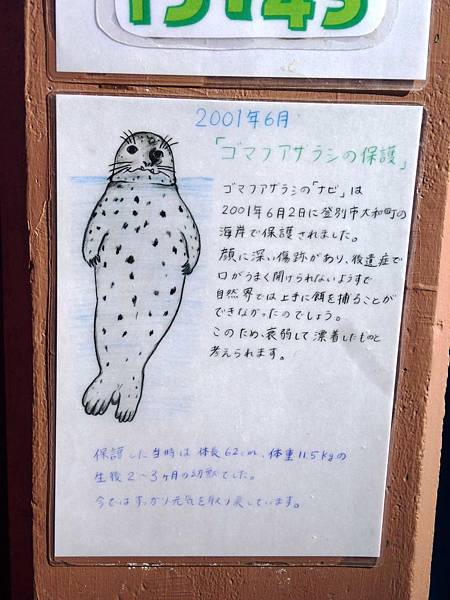 2001年6月
「ゴマフアザラシの保護」
ゴマフアザラシの「ナビ」は
2001年6月2日に登別市大和町の
海岸で保護されました。
顔に深い傷跡があり、後遺症で
口がうまく開けられないようすで
自然界では上手に餌を捕ることが
できなかったのでしょう。
このため、衰弱して漂着したものと
考えられます。
保護した当時は体長62cm、体重11.5kgの
生後2~3ヶ月の幼獣でした。
今ではすっかり元気を取り戻しています。